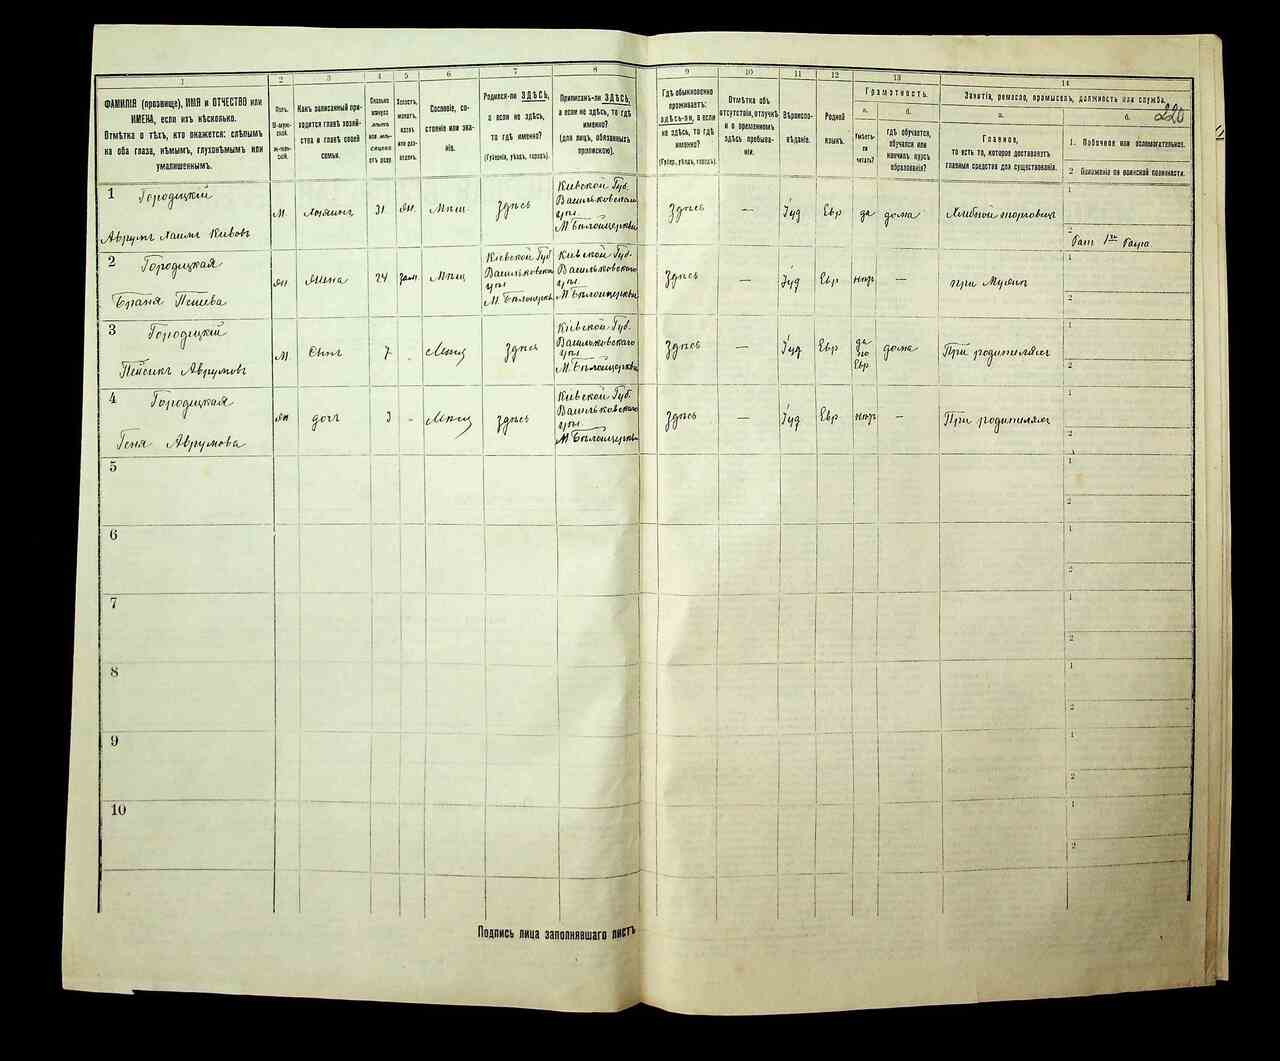 220
1
2
3
4
5
6
7
8
9
10
11
12
13
14
ФАМИЛІЯ (прозвище), ИМЯ и ОТЧЕСТВО или
ИМЕНА, если ихъ нѣсколько.
Отмѣтка о тѣхъ, кто окажется: слѣпымъ
на оба глаза, нѣмымъ, глухонѣмымъ или
умалишеннымъ.
Полъ.
М-муж-
ской.
Ж-жен-
ской.
Какъ записанный при-
ходится главѣ хозяй-
ства и главѣ своей
семьи.
Сколько
минуло
лѣтъ
или мѣ-
сяцевъ
отъ роду
Холостъ,
женатъ,
вдовъ
или раз-
веденъ.
Сословіе, со-
стояніе или зва-
ніе.
Родился-ли ЗДѢСЬ,
а если не здѣсь,
то гдѣ именно?
(Губернія, уѣздъ, городъ).
Приписанъ-ли ЗДѢСЬ,
а если не здѣсь, то гдѣ
именно?
(для лицъ, обязанныхъ
припискою).
Гдѣ обыкновенно
проживаетъ:
здѣсь-ли, а если
не здѣсь, то гдѣ
именно?
(Губер., уѣздъ, городъ).
Отмѣтка объ
отсутствіи, отлучкѣ
и о временномъ
здѣсь пребыва-
ніи.
Вѣроиспо-
вѣданіе.
Родной
языкъ.
Грамотность.
а.
б.
Умѣетъ-
ли
читать?
гдѣ обучается,
обучался или
кончилъ курсъ
образованія?
Занятіе, ремесло, промыселъ, должность или служба.
а.
б.
Главное,
то есть то, которое доставляетъ
главныя средства для существованія.
1. Побочное или вспомогательное.
2 Положеніе по воинской повинности.
1
Городецкій
Аврумъ Хаимъ
М
Хозяинъ
31
жен.
Мѣщ.
Здѣсь
Кіевской Губ.
Васильковскаго
уѣз.
М. Бѣлоцеркви
Здѣсь
—
Іуд
Евр
да
дома
Хлѣбной торговецъ
1
2
Рат 1го
2
Городецкая
Браня
жн
Жена
24
зам.
Мѣщ
Кіевской Губ
Васильковскаго
уѣз
М. Бѣлоцеркви
Кіевской Губ.
Васильковскаго
уѣз.
М. Бѣлоцеркви
Здѣсь
—
Іуд
Евр
нѣт
—
при Мужѣ
1
2
3
Городецкій
Пейсикъ Аврумовъ
М
Сынъ
7
-
Мѣщ
Здѣсь
Кіевской Губ.
Васильковскаго
уѣз.
М. Бѣлоцеркви
Здѣсь
—
Іуд
Евр
да
по
Евр
дома
При родителяхъ
1
2
4
Городецкая
Геня Аврумова
жн
дочь
3
-
Мѣщ
здѣсь
Кіевской Губ.
Васильковскаго
уѣз.
М. Бѣлоцеркви
Здѣсь
—
Іуд
Евр
нѣт
—
При родителяхъ
1
2
5
1
2
6
1
2
7
1
2
8
1
2
9
1
2
10
1
2
Подпись лица заполнявшаго листъ